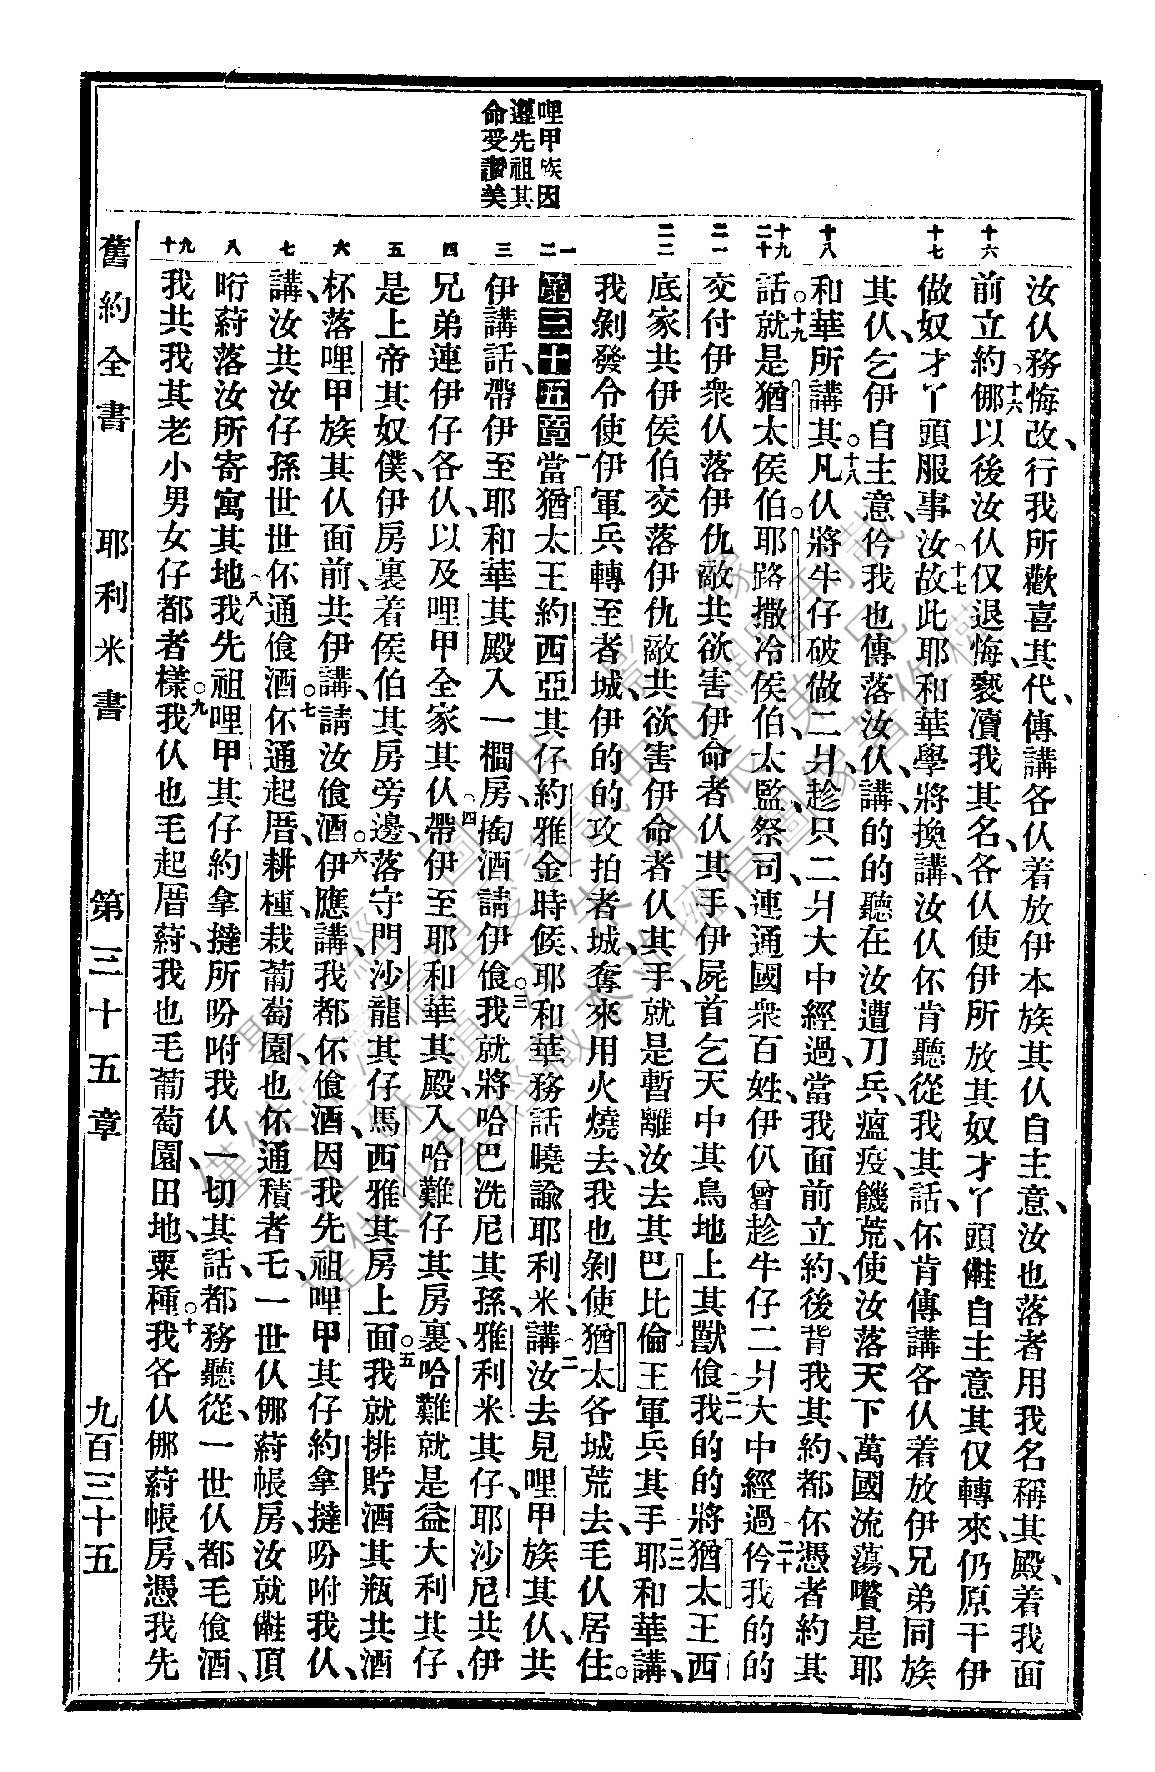 哩甲族因
遵先祖其
命受讚美
十六
十七
十八
十九
二十
二一
二二
一
二
三
四
五
六
七
八
九
十
汝仈務悔改、行我所歡喜其代、傳講各仈着放伊本族其仈自主意、汝也落者用我名稱其殿、着我面
前立約。十六𠆧以後汝仈仅退悔褻瀆我其名、各仈使伊所放其奴才丫頭𠆧自主意其仅轉來、仍原干伊
做奴才丫頭服事汝。十七故此耶和華學將換講、汝仈伓肯聽從我其話、伓肯傳講各仈着放伊兄弟同族
其仈、乞伊自主意、仱我也傳落汝仈、講、的的聽在汝遭刀兵、瘟疫、饑荒、使汝落天下萬國流蕩、嚽是耶
和華所講其。十八凡仈將牛仔破做二爿、趁只二爿大中經過、當我面前立約、後背我其約、都伓憑者約其
話。十九就是猶太侯伯、耶路撒冷侯伯、太監、祭司、連通國衆百姓、伊仈曾趁牛仔二爿大中經過、二十仱我的的
交付伊衆仈落伊仇敵共欲害伊命者仈其手、伊屍首乞天中其鳥地上其獸飡。二一我的的將猶太王西
底家共伊侯伯交落伊仇敵共欲害伊命者仈其手、就是暫離汝去其巴比倫王軍兵其手。二二耶和華講、
我剝發令使伊軍兵轉至者城、伊的的攻拍者城、奪來用火燒去、我也剝使猶太各城荒去、毛仈居住。
第三十五章一當猶太王約西亞其仔約雅金時候、耶和華務話曉諭耶利米、講、二汝去見哩甲族其仈、共
伊講話、帶伊至耶和華其殿入一櫊房、掏酒請伊飡。三我就將哈巴洗尼其孫、雅利米其仔、耶沙尼共伊
兄弟連伊仔各仈、以及哩甲全家其仈、四帶伊至耶和華其殿、入哈難仔其房裏、哈難就是益大利其仔、
是上帝其奴僕、伊房裏着侯伯其房旁邊、落守門沙龍其仔馬西雅其房上面。五我就排貯酒其瓶共酒
杯落哩甲族其仈面前、共伊講、請汝飡酒。六伊應講、我都伓飡酒、因我先祖哩甲其仔約拿撻吩咐我仈、
講、汝共汝仔孫世世伓通飡酒。七伓通起厝、耕種、栽葡萄園、也伓通積者乇、一世仈𠆧蒔帳房、汝就𠆧頂
𣍐蒔落汝所寄寓其地。八我先祖哩甲其仔約拿撻所吩咐我仈一切其話、都務聽從、一世仈都毛飡酒、
我共我其老小男女仔都者樣。九我仈也毛起厝蒔、我也毛葡萄園、田地、粟種。十我各仈𠆧蒔帳房、憑我先
舊約全書
耶利米書
第三十五章
九百三十五